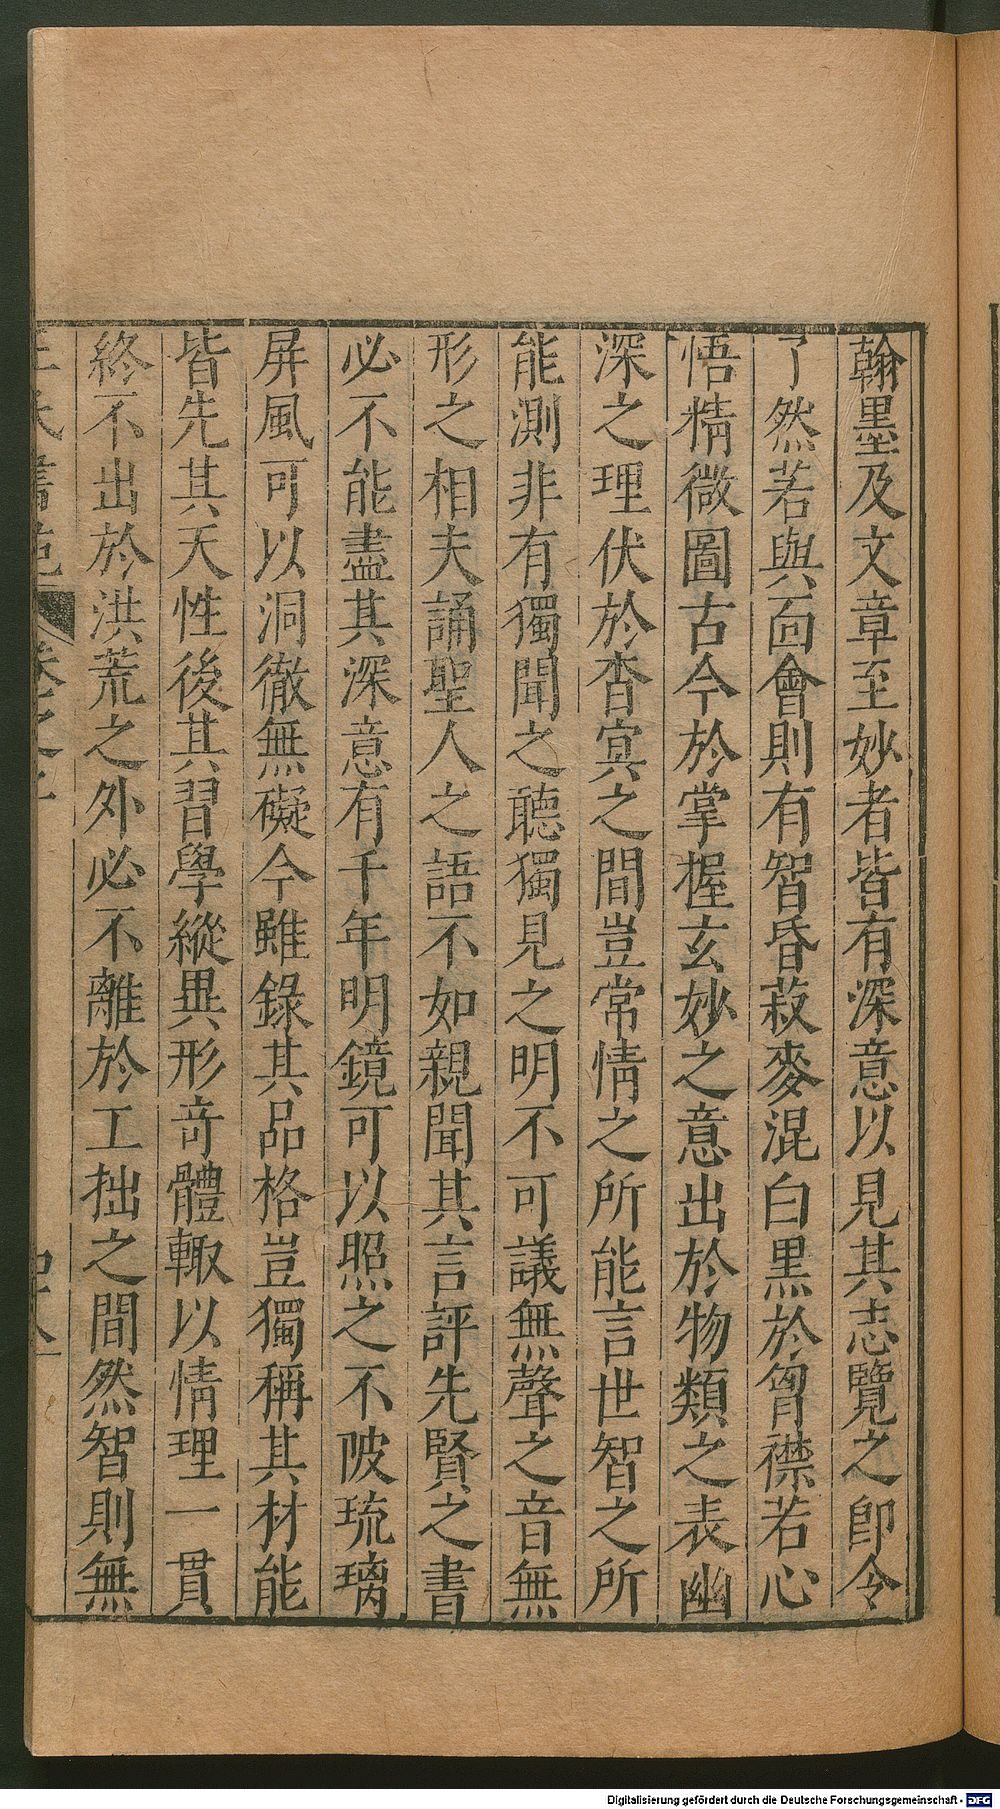 翰墨及文章至妙者皆有深意以見其志覽之即令
了然若與面會則有智昏菽麥混白黑於胷襟若心
悟精微圖古今於掌握玄妙之意出於物類之表幽
深之理伏於杳冥之間豈常情之所能言世智之所
能測非有獨聞之聽獨見之明不可議無聲之音無
形之相夫誦聖人之語不如親聞其言評先賢之書
必不能盡其深意有千年明鏡可以照之不陂琉璃
屏風可以洞徹無礙今雖錄其品格豈獨稱其材能
皆先其天性後其習學縱異形竒體輙以情理一貫
終不出於洪荒之外必不離於工拙之間然智則無
王氏書苑 卷之
Digitalisierung gefördert durch die Deutsche Forschungsgemeinschaft - DFG